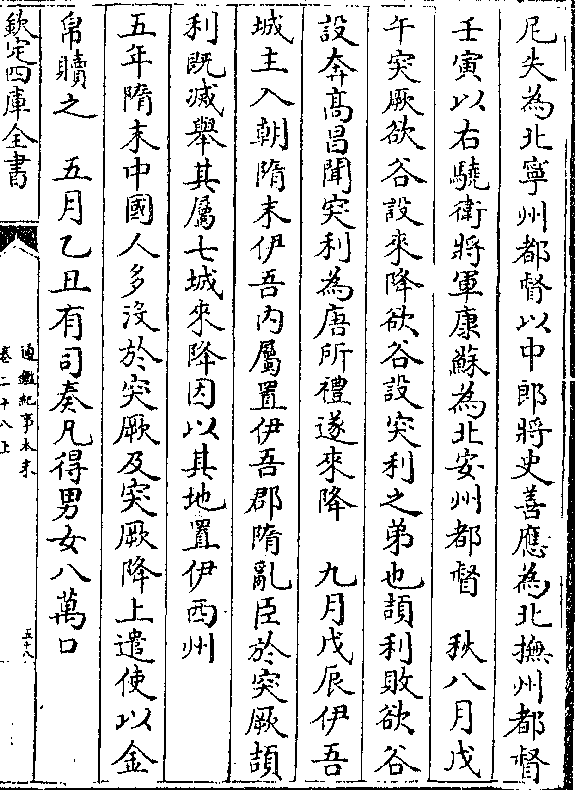 尼失為北寧州都督以中郎將史善應為北撫州都督
壬寅以右驍衛將軍康蘇為北安州都督　秋八月戊
午突厥欲谷設來降欲谷設突利之弟也頡利敗欲谷
設奔髙昌聞突利為唐所禮遂來降　九月戊辰伊吾
城主入朝隋末伊吾内屬置伊吾郡隋亂臣於突厥頡
利既滅舉其屬七城來降因以其地置伊西州
五年隋末中國人多沒於突厥及突厥降上遣使以金
帛贖之　五月乙丑有司奏凡得男女八萬口
欽定四庫全書
通鑑紀事本末
卷二十八上